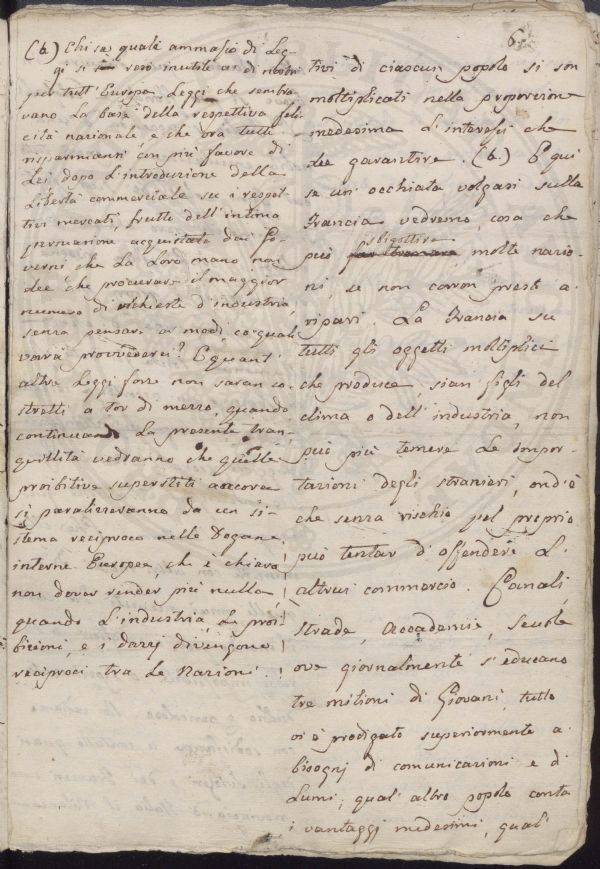 6
(b) Chi sa quale ammasso di Leg-
gi si sia reso inutile a' dì nostri
per tutt'Europa. Leggi che sembra-
vano La base della respettiva feli-
cità nazionale, e che ora tutte
risparmiansi con più favore di
Lei dopo L'introduzione della
Libertà commerciale su i respet-
tivi mercati, frutto dell'intima
persuasione acquistata dai Go-
verni che La Loro mano non
dee che procurare il maggior
numero di richieste d'industria,
senza pensare ai modi co' quali
vorrà provvederci? E quant'
altre Leggi forse non saran co-
stretti a tor di mezzo, quando
continuando La presente tran-
quillità vedranno che quelle
proibitive superstiti ancora
si paralizzeranno da un si-
stema reciproco nelle Dogane
interne Europee, che è chiaro
non dover render più nulla,
quando L'industria, Le proi-
bizioni, e i dazj divengono
reciproci tra Le Nazioni.
tivi di ciascun popolo si son
moltiplicati nella proporzione
medesima d'interessi che
dee garantire. (b) E qui
se un'occhiata volgasi sulla
Francia vedremo, cosa che
può sbigottire molte nazio-
ni, se non corron preste a'
ripari. La Francia su
tutti gli oggetti moltiplici
che produce, sian figli del
clima o dell'industria, non
può più temere Le impor-
tazioni degli stranieri, ond'è
che senza rischio pel proprio
può tentar d'offendere L'
altrui commercio. Canali,
strade, Accademie, Scuole
ove giornalmente s'educano
tre milioni di Giovani, tutto
vi è prodigato superiormente a'
bisogni di comunicazioni e di
Lumi; qual'altro popolo conta
i vantaggi medesimi, qual'